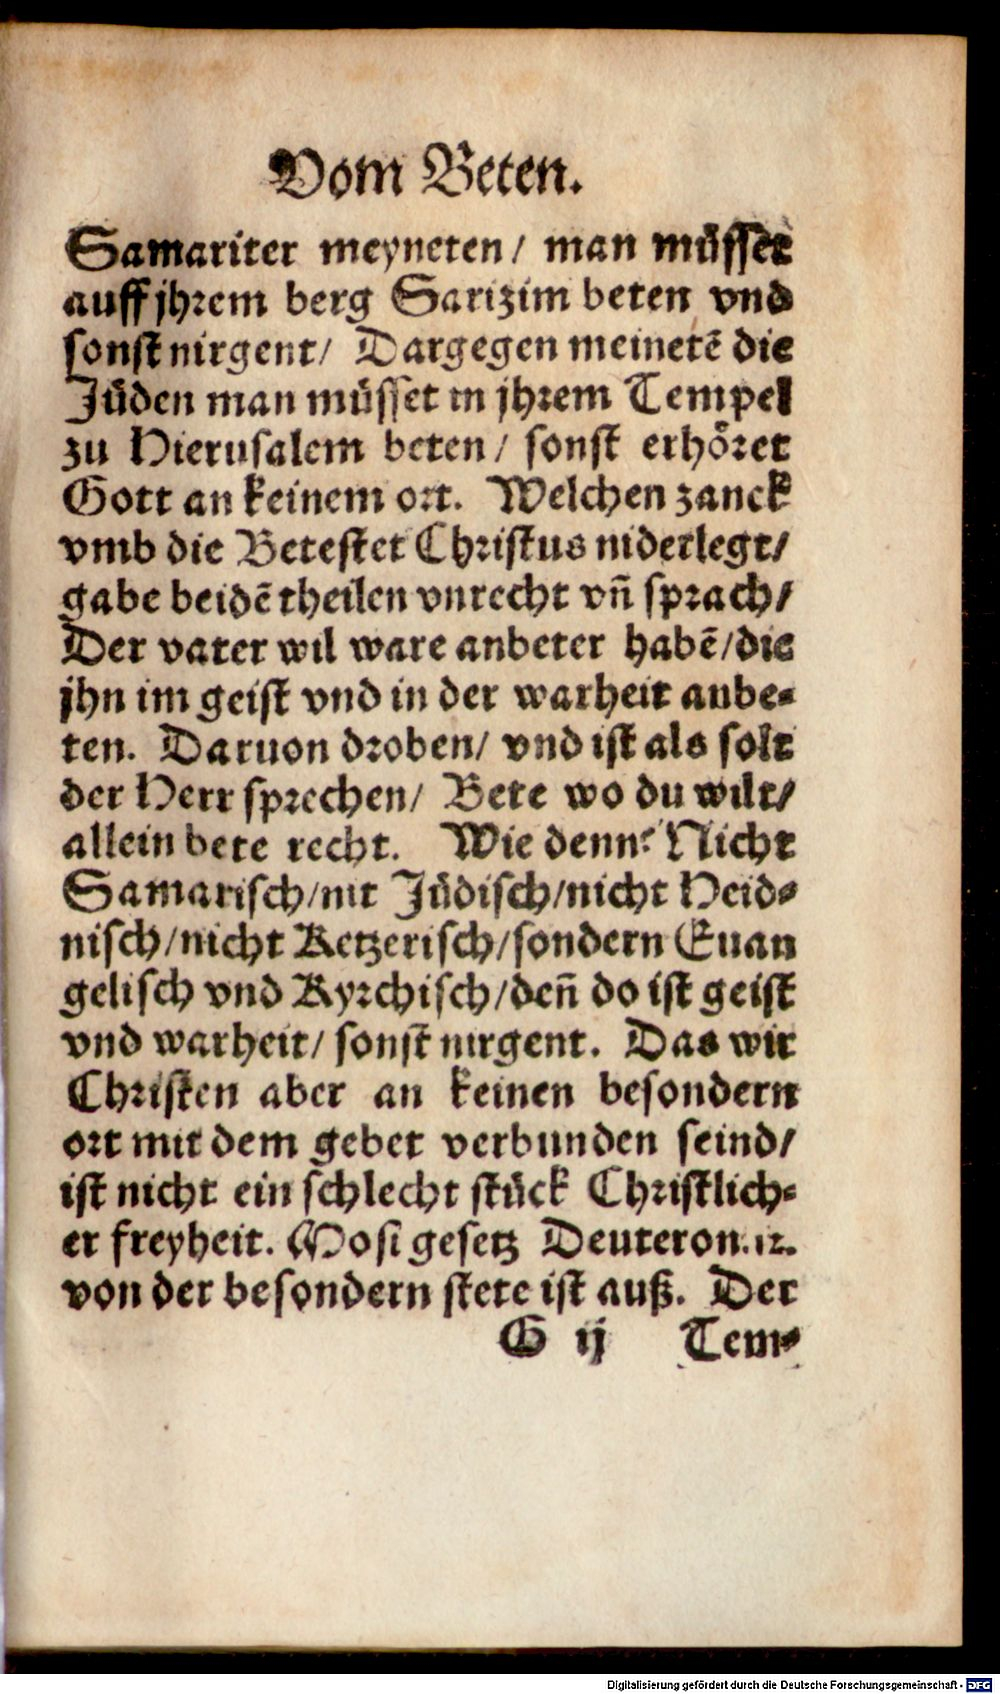 Vom Beten.
Samariter meyneten/ man müsset
auff jhrem berg Sarizim beten vnd
sonst nirgent/ Dargegen meinetē die
Jüden man müsset in jhrem Tempel
zu Hierusalem beten/ sonst erhöret
Gott an keinem ort. Welchen zanck
vmb die Betestet Christus niderlegt/
gabe beidē theilen vnrecht vñ sprach/
Der vater wil ware anbeter habē/die
jhn im geist vnd in der warheit anbe-
ten. Daruon droben/ vnd ist als solt
der Herr sprechen/ Bete wo du wilt/
allein bete recht. Wie denn? Nicht
Samarisch/nit Jüdisch/nicht Heid-
nisch/nicht Ketzerisch/sondern Euan
gelisch vnd Kyrchisch/deñ do ist geist
vnd warheit/ sonst nirgent. Das wir
Christen aber an keinen besondern
ort mit dem gebet verbunden seind/
ist nicht ein schlecht stück Christlich-
er freyheit. Mosi gesetz Deuteron.12.
von der besondern stete ist auß. Der
G ij Tem-
Digitalisierung gefördert durch die Deutsche Forschungsgemeinschaft - DFG